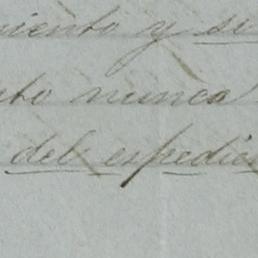 miento y si
to nunca
del espedien